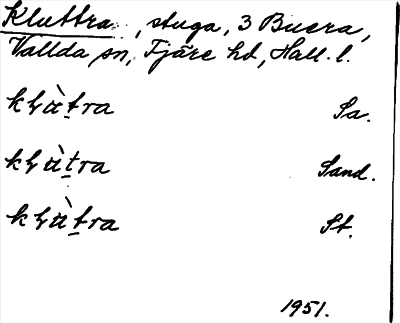 Kluttra, stuga, 3 Buera,
Vallda sn, Fjäre hd, Hall. l.
kḷùt̠ra Sa.
kḷùt̠ra Sand.
kḷùt̠ra St.
1951.